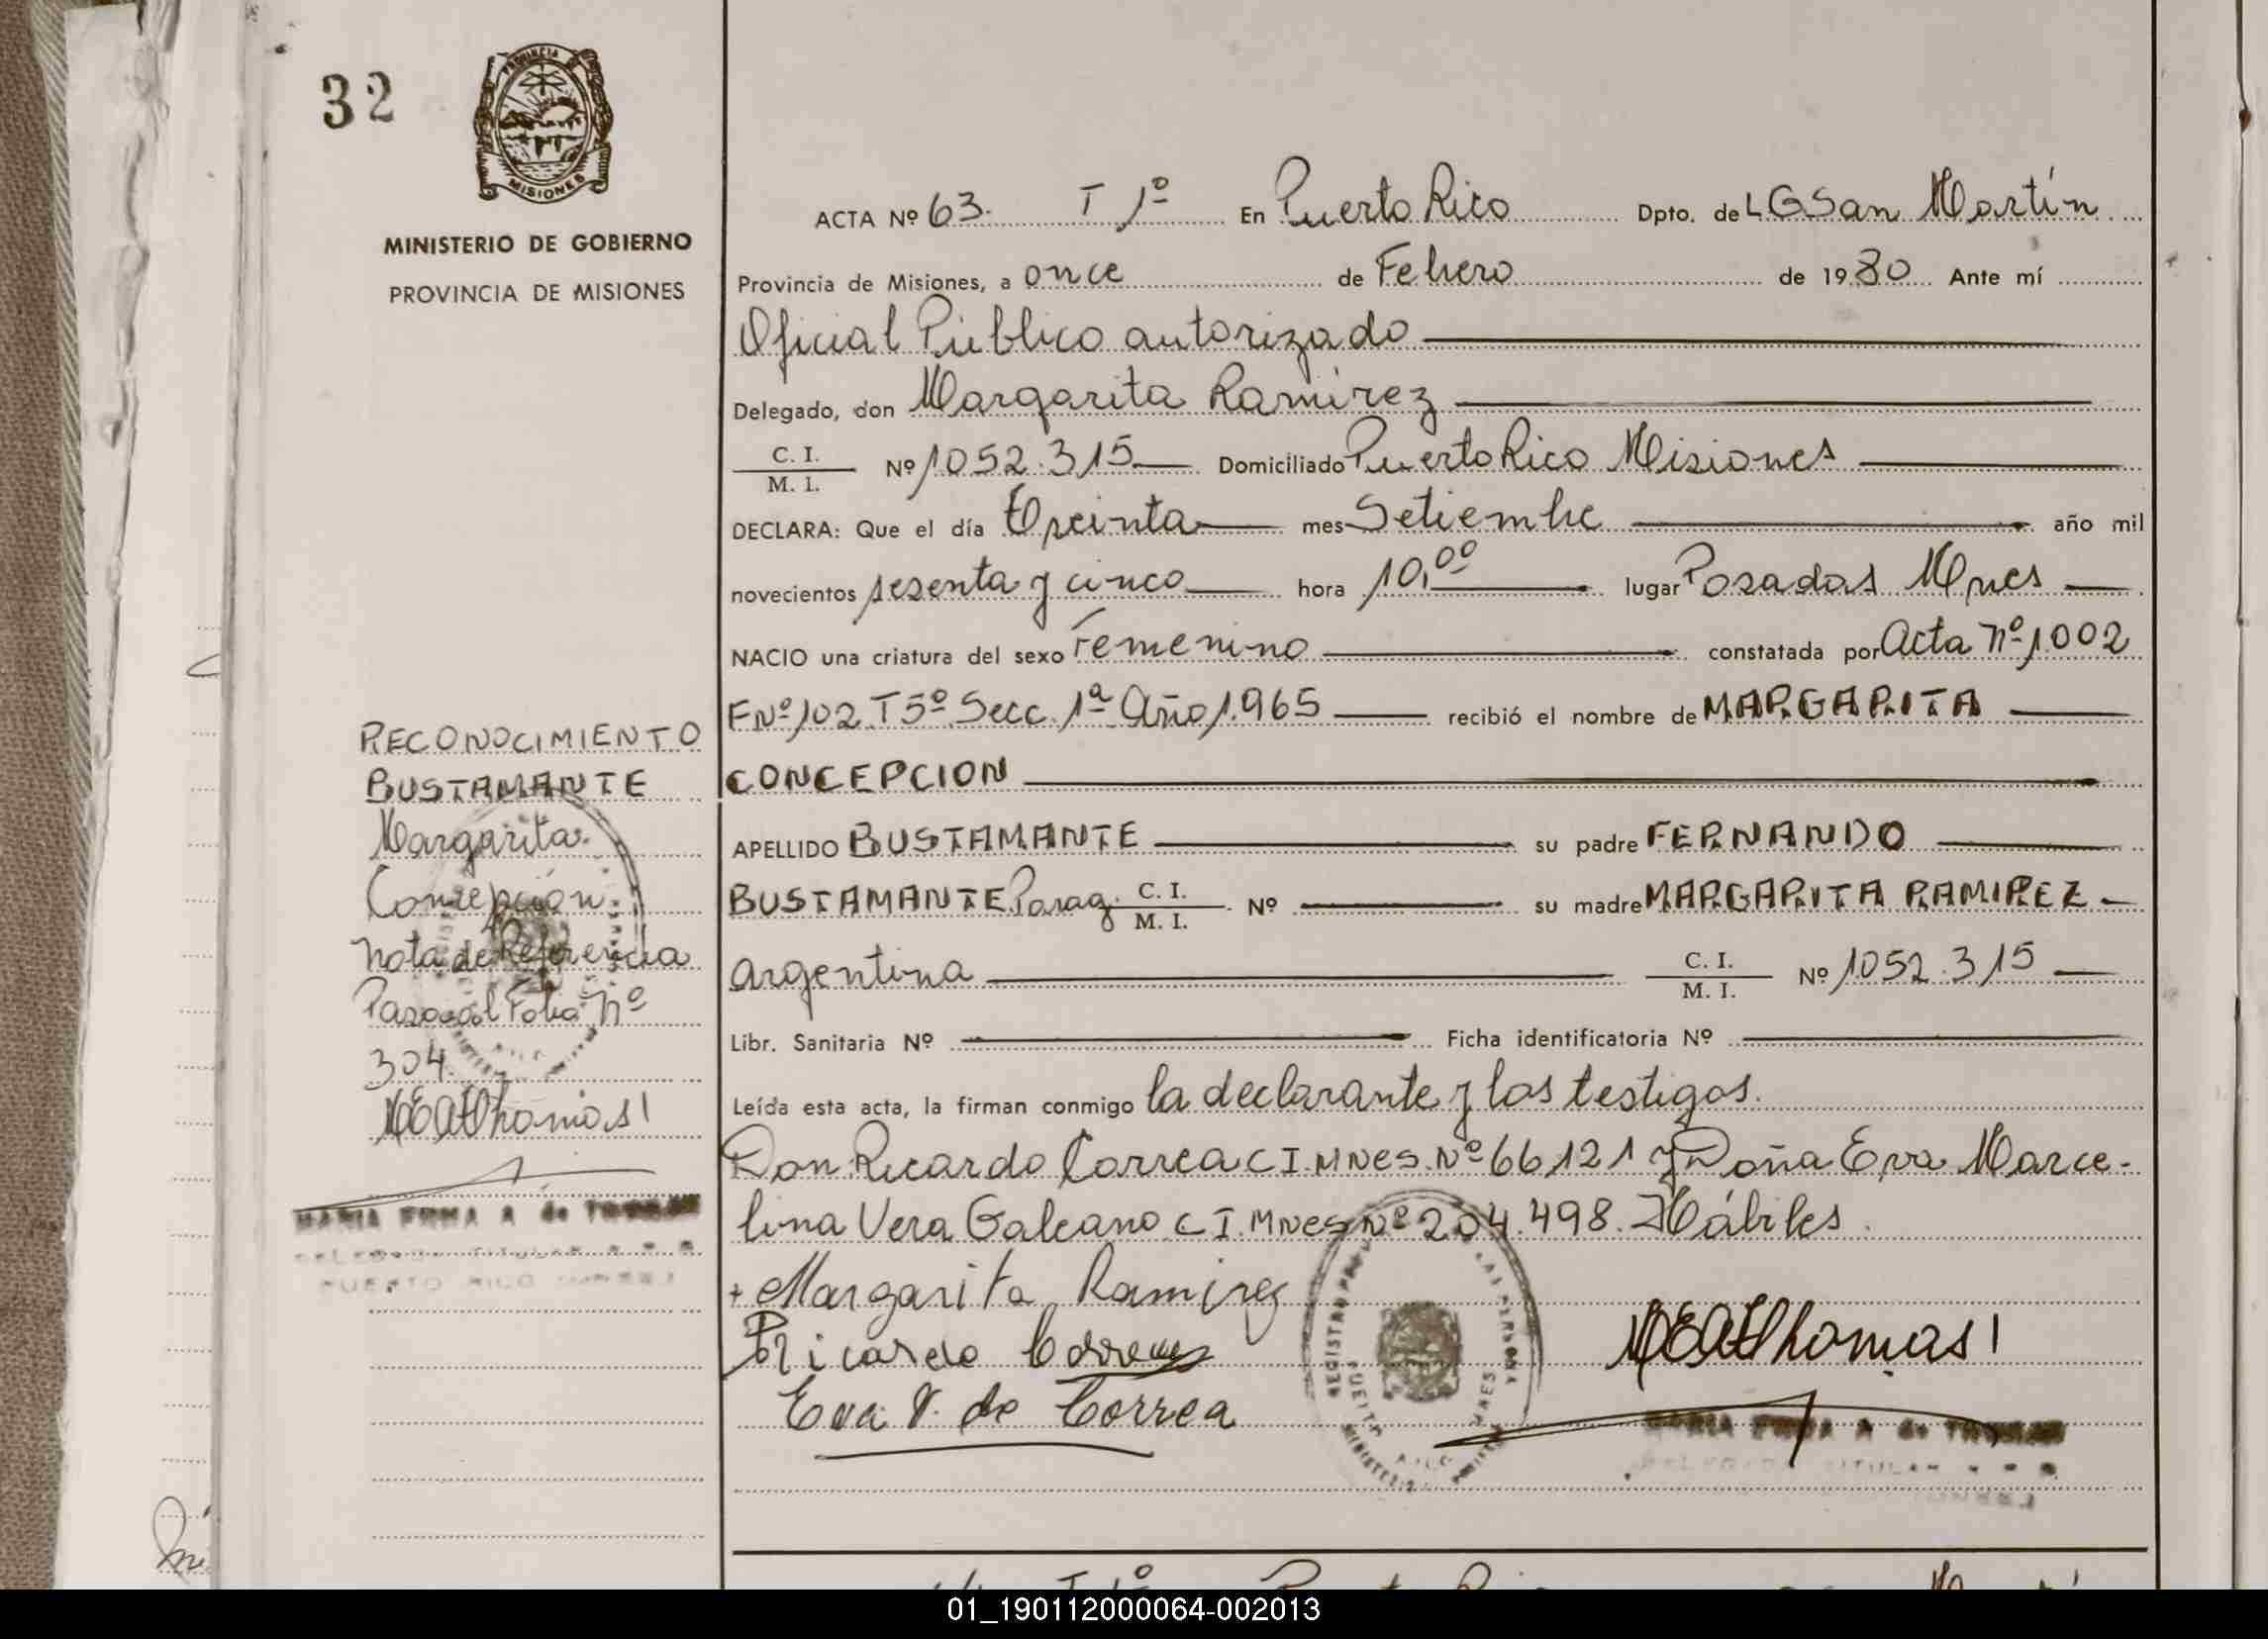 32
PROVINCIA DE
MISIONES
MINISTERIO DE GOBIERNO
PROVINCIA DE MISIONES
RECONOCIMIENTO
BUSTAMANTE
Margarita
Concepción
Nota de Referencia
Pasa al Folio Nº
304.
MEAThomas
MARIA EMMA A de
DELEGADA TITULAR
PUERTO RICO
ACTA Nº 63. T 1º En Puerto Rico Dpto. de LGSan Martín
Provincia de Misiones, a once de Febrero de 1980 Ante mí
Oficial Público autorizado
Delegado, don Margarita Ramirez
C. I. / M. I. Nº 1052.315 Domiciliado Puerto Rico Misiones
DECLARA: Que el día Treinta mes Setiembre año mil
novecientos sesenta y cinco hora 10,00 lugar Posadas Mnes
NACIO una criatura del sexo Femenino constatada por Acta Nº 1002
FNº 102 T5º Secc. 1ª Año 1.965 recibió el nombre de MARGARITA
CONCEPCION
APELLIDO BUSTAMANTE su padre FERNANDO
BUSTAMANTE Parag. C. I. / M. I. Nº su madre MARGARITA RAMIREZ
argentina C. I. / M. I. Nº 1052.315
Libr. Sanitaria Nº Ficha identificatoria Nº
Leída esta acta, la firman conmigo la declarante y los testigos.
Don Ricardo Correa C I. MNes. Nº 66121 y Doña Eva Marce-
lina Vera Galeano C I. MNes Nº 204.498. Hábiles.
+ Margarita Ramirez
Ricardo Correa
Eva V. de Correa
MEAThomas
MARIA EMMA A de
TITULAR
REGISTRO
PUERTO RICO
01_190112000064-002013